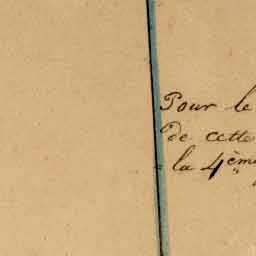 Pour le
de cette
la 4ème